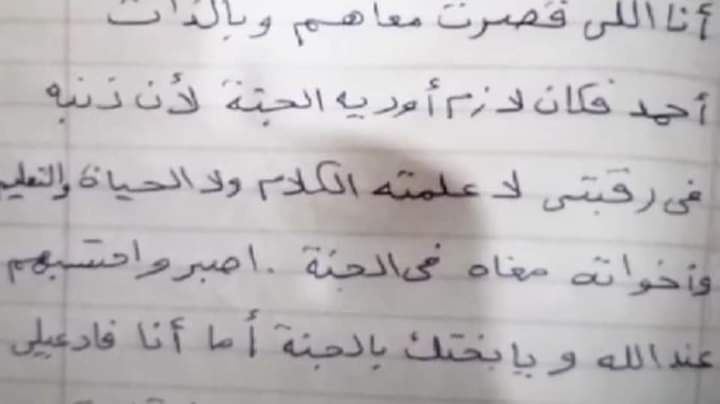 أنا اللى قصرت معاهم وبالذات
أحمد فكان لازم أوديه الجنة لأن ذنبه
فى رقبتى لا علمته الكلام ولا الحياة والتعليم
وأخواته معاه فى الجنة . اصبر واحتسبهم
عند الله و يا بختك بالجنة أما أنا فادعيلى